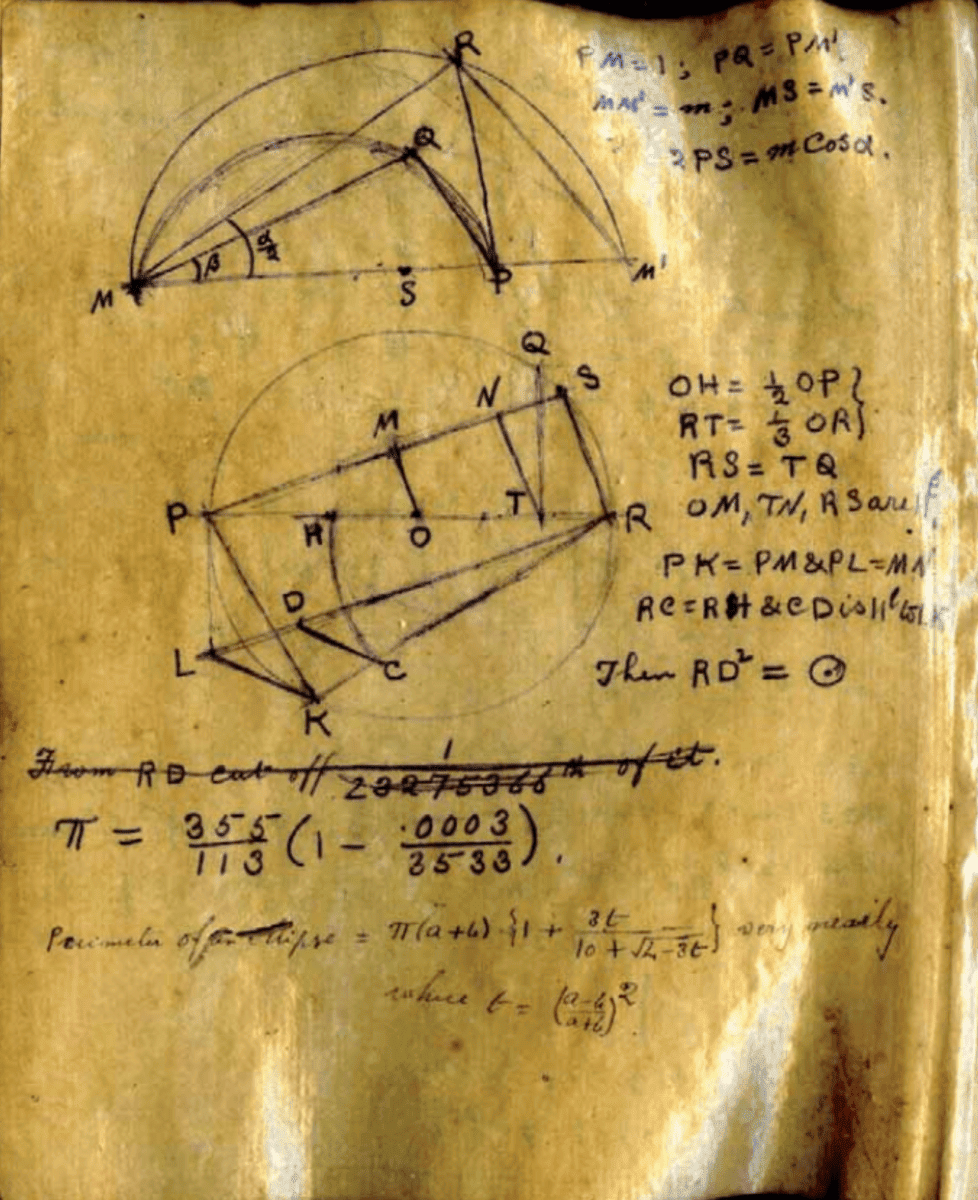 PM = 1 ; PQ = PM'.
MM' = m ; MS = M'S.
2PS = m Cos α.
R
Q
β
α/2
M
S
P
M'
Q
S
N
M
P
H
O
T
R
D
L
C
K
OH = 1/2 OP }
RT = 1/3 OR }
RS = TQ
OM, TN, RS are ||l
PK = PM & PL = MN
RC = RH & CD is ||l to LK
Then RD² = ⊙
From RD cut off 1/23275366 th of it.
π = 355/113 (1 − .0003/3533).
Perimeter of an ellipse = π(a+b) {1 + 3t/(10 + √4−3t)} very nearly
where t = (a−b/a+b)².